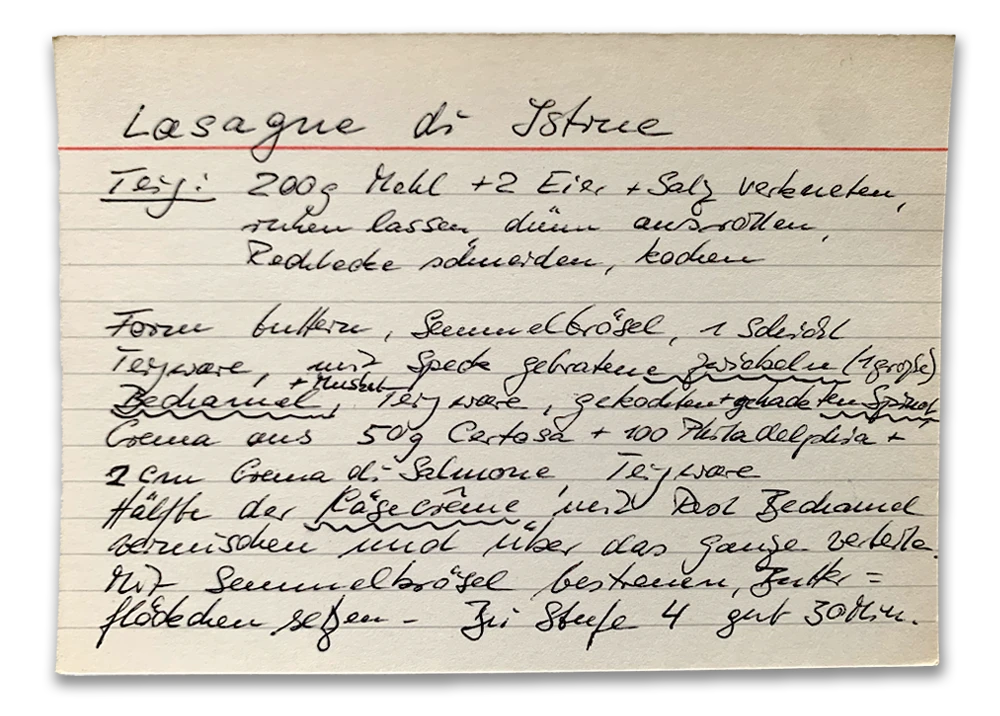 Lasagne di Istrue
Teig: 200g Mehl + 2 Eier + Salz verkneten,
ruhen lassen, dünn ausrollen,
Rechtecke schneiden, kochen
Form buttern, Semmelbrösel, 1 Schicht
Teigware, mit Speck gebratene Zwiebeln (1 große)
+ Muskat
Bechamel, Teigware, gekochten + gehackten Spinat
Crema aus 50g Certosa + 100 Philadelphia +
2 cm Crema di Salmone, Teigware
Hälfte der Käsecrème mit Rest Bechamel
vermischen und über das ganze verteilen.
Mit Semmelbrösel bestreuen, Butter=
flöckchen setzen - Bei Stufe 4 gut 30 Min.